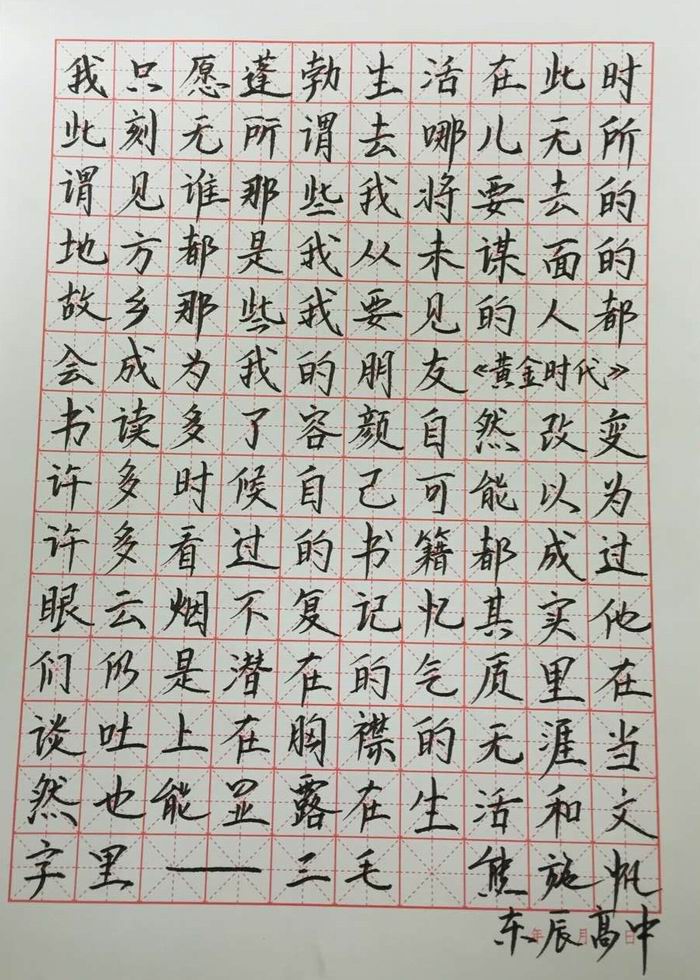 我只愿蓬勃生活在此时
此刻无所谓去哪儿无所
谓见谁那些我将要去的
地方都是我从未谋面的
故乡那些我要见的人都
会成为我的朋友《黄金时代》
书读多了容颜自然改变
许多时候自己可能以为
许多看过的书籍都成过
眼云烟不复记忆其实他
们仍是潜在的气质里在
谈吐上在胸襟的无涯当
然也能显露在生活和文
字里——三毛 熊施帆
年 月 日
东辰高中